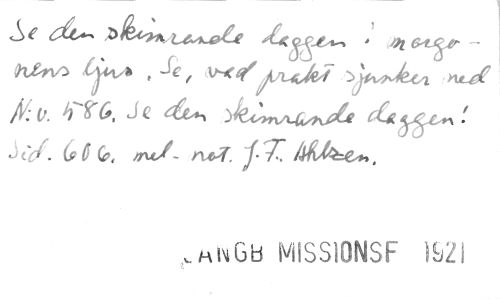 Se den skimrande daggen i morgo-
nens ljus. Se, vad prakt sjunker ned
N:o. 586. Se den skimrande daggen!
Sid. 606. mel- not. J.F. Ahlzen.
SÅNGB MISSIONSF 1921